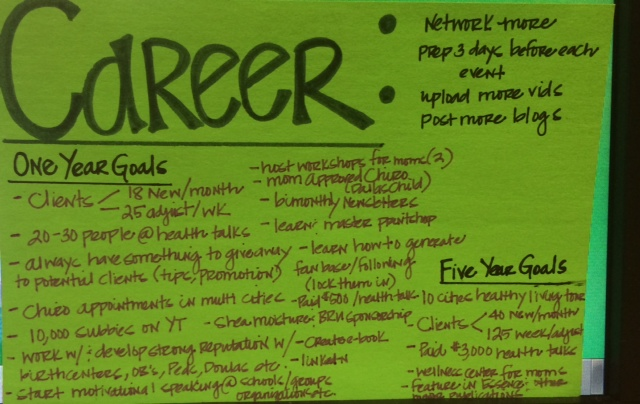 CAREER:
Network more
prep 3 days before each
event
upload more vids
post more blogs
One Year Goals
- Clients < 18 New/month
25 adjust/wk
- 20-30 people @ health talks
- always have something to giveaway
to potential clients (tips, promotion)
- Chiro appointments in multi cities
- 10,000 subbies on YT
- work w/: develop strong reputation w/
birthcenters, OB's, Peds, Doulas etc.
- start motivational speaking @ schools/groups
organizations etc
- host workshops for moms (2)
- mom approved Chiro
(DallasChild)
- bimonthly Newsletters
- learn: master
- learn how to generate
fan base/following
(lock them in)
- Paid $500/health talk
- Shea moisture: sponsorship
- Create e-book
- linkedn
Five Year Goals
- 10 cities healthy living tour
- Clients < 40 New/month
125 week/adjust
- Paid $3,000 health talks
- wellness center for moms
- Feature in Essence: other
major publications